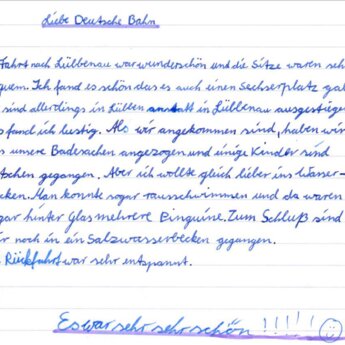 Liebe Deutsche Bahn
Fahrt nach Lübbenau war wunderschön und die Sitze waren seh
quem. Ich fand es schön das es auch einen Sechserplatz gab
sind allerdings in Lübben anstatt in Lübbenau ausgestiegen
s fand ich lustig. Als wir angekommen sind, haben wir
s unsere Badesachen angezogen und einige Kinder sind
tschen gegangen. Aber ich wollte gleich lieber ins Wasser-
cken. Man konnte sogar rausschwimmen und da waren
gar hinter Glas mehrere Pinguine. Zum Schluß sind
ir noch in ein Salzwasserbecken gegangen.
Rückfahrt war sehr entspannt.
Es war sehr sehr schön !!!!!